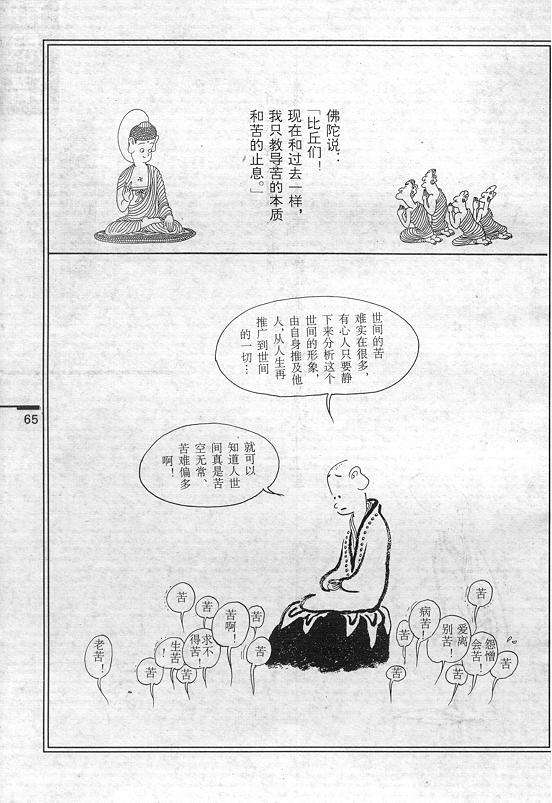 佛陀说：
「比丘们！
现在和过去一样，
我只教导苦的本质
和苦的止息。」
世间的苦
难实在很多，
有心人只要静
下来分析这个
世间的形象，
由自身推及他
人，从人生再
推广到世间
的一切…
就可以
知道人世
间真是苦
空无常、
苦难偏多
啊！
65
苦
苦
怨憎
会苦！
苦
爱离
别苦！
病
苦！
苦
苦
苦
苦
苦啊！
苦
求不
得苦！
苦
苦
生苦
！
苦
老苦！